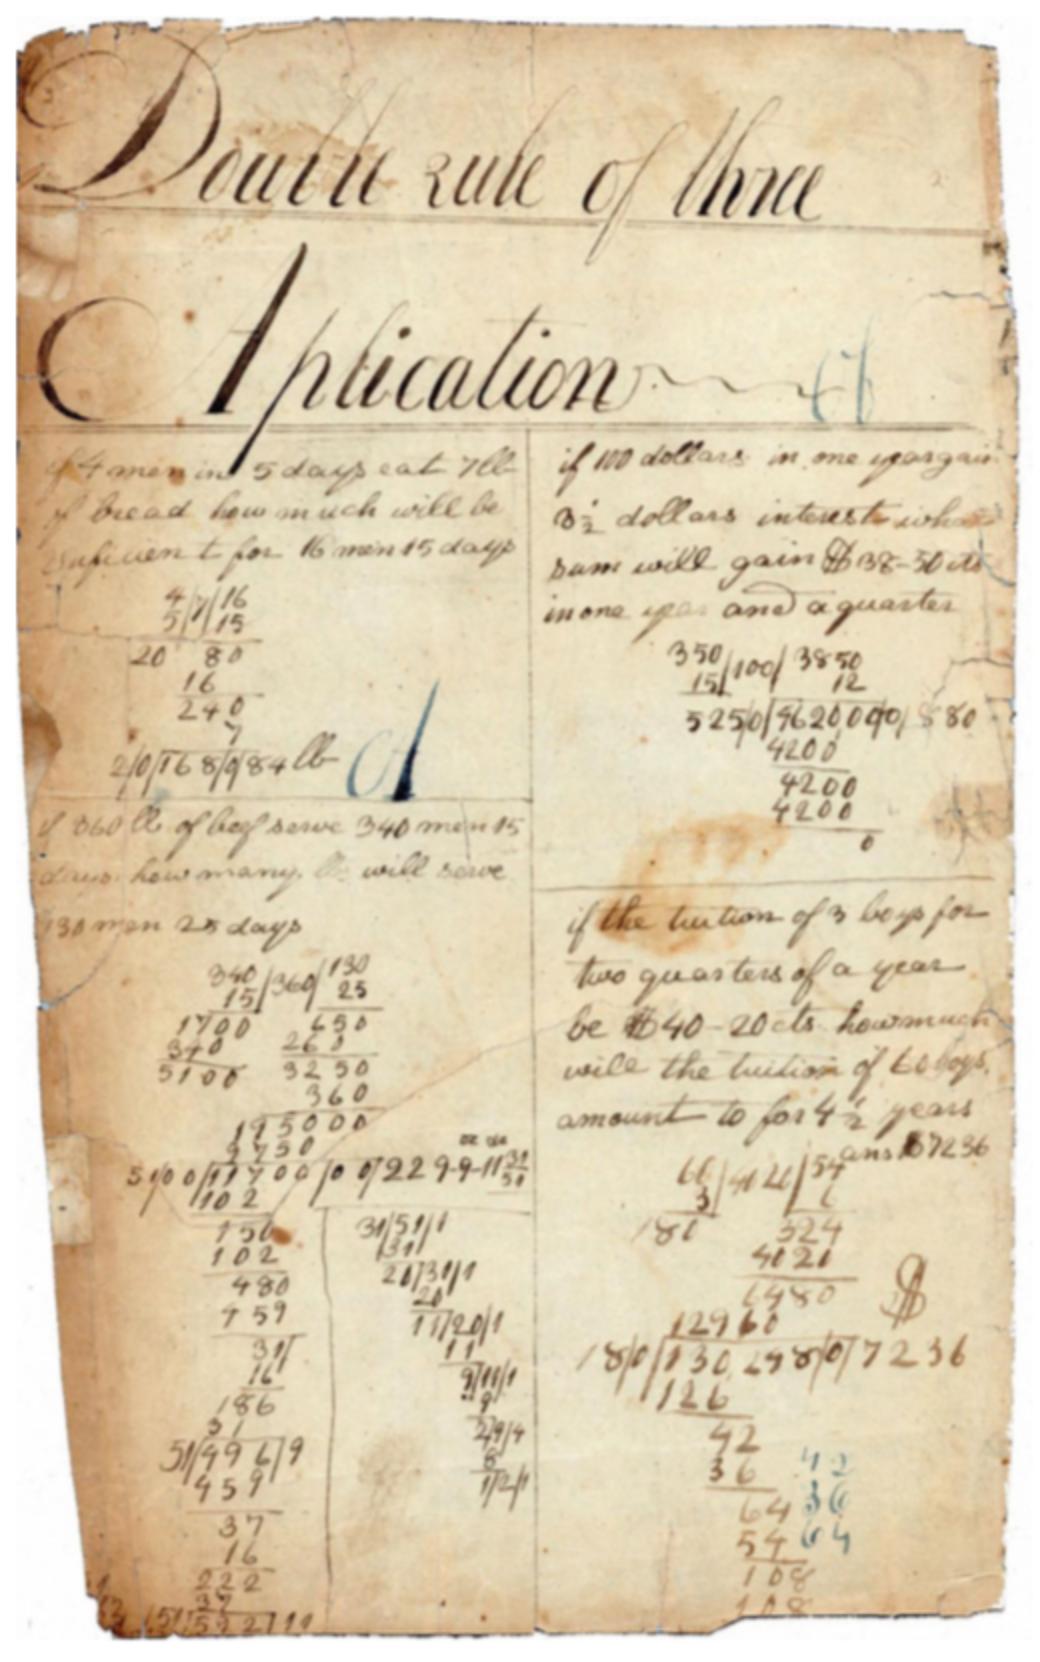 Double rule of three
Aplication
46
if 4 men in 5 days eat 7 lb
of bread how much will be
sufficient for 16 men 15 days
4/7/16
5/ /15
20 80
16
240
7
2/0/168/0/84 lb
if 360 lb of beef serve 340 men 15
days how many lb will serve
130 men 25 days
340 /360/ 130
15 25
1700 650
340 260
5100 3250
360
195000
9750
oz
51/00/11700 /0 0/229-9-11 31/51
102
150
102
480
459
31/
16
186
31
51/496/9
459
37
16
222
37
/51/592/11
31/51/1
31
20/31/1
20
11/20/1
11
9/11/1
9
2/9/4
8
1/2/1
if 100 dollars in one year gain
3 1/2 dollars interest what
sum will gain $ 38-50 cts
in one year and a quarter
350 /100/ 3850
15 12
525/0/4620000/0/880
4200
4200
4200
0
if the tuition of 3 boys for
two quarters of a year
be $40-20 cts how much
will the tuition of 60 boys
amount to for 4 1/2 years
ans $7236
60 /4020/ 54
3 6
180 324
4020
6480
12960
18/0/130248/0/7236
126
42
36
64
54
108
108
$
42
36
64